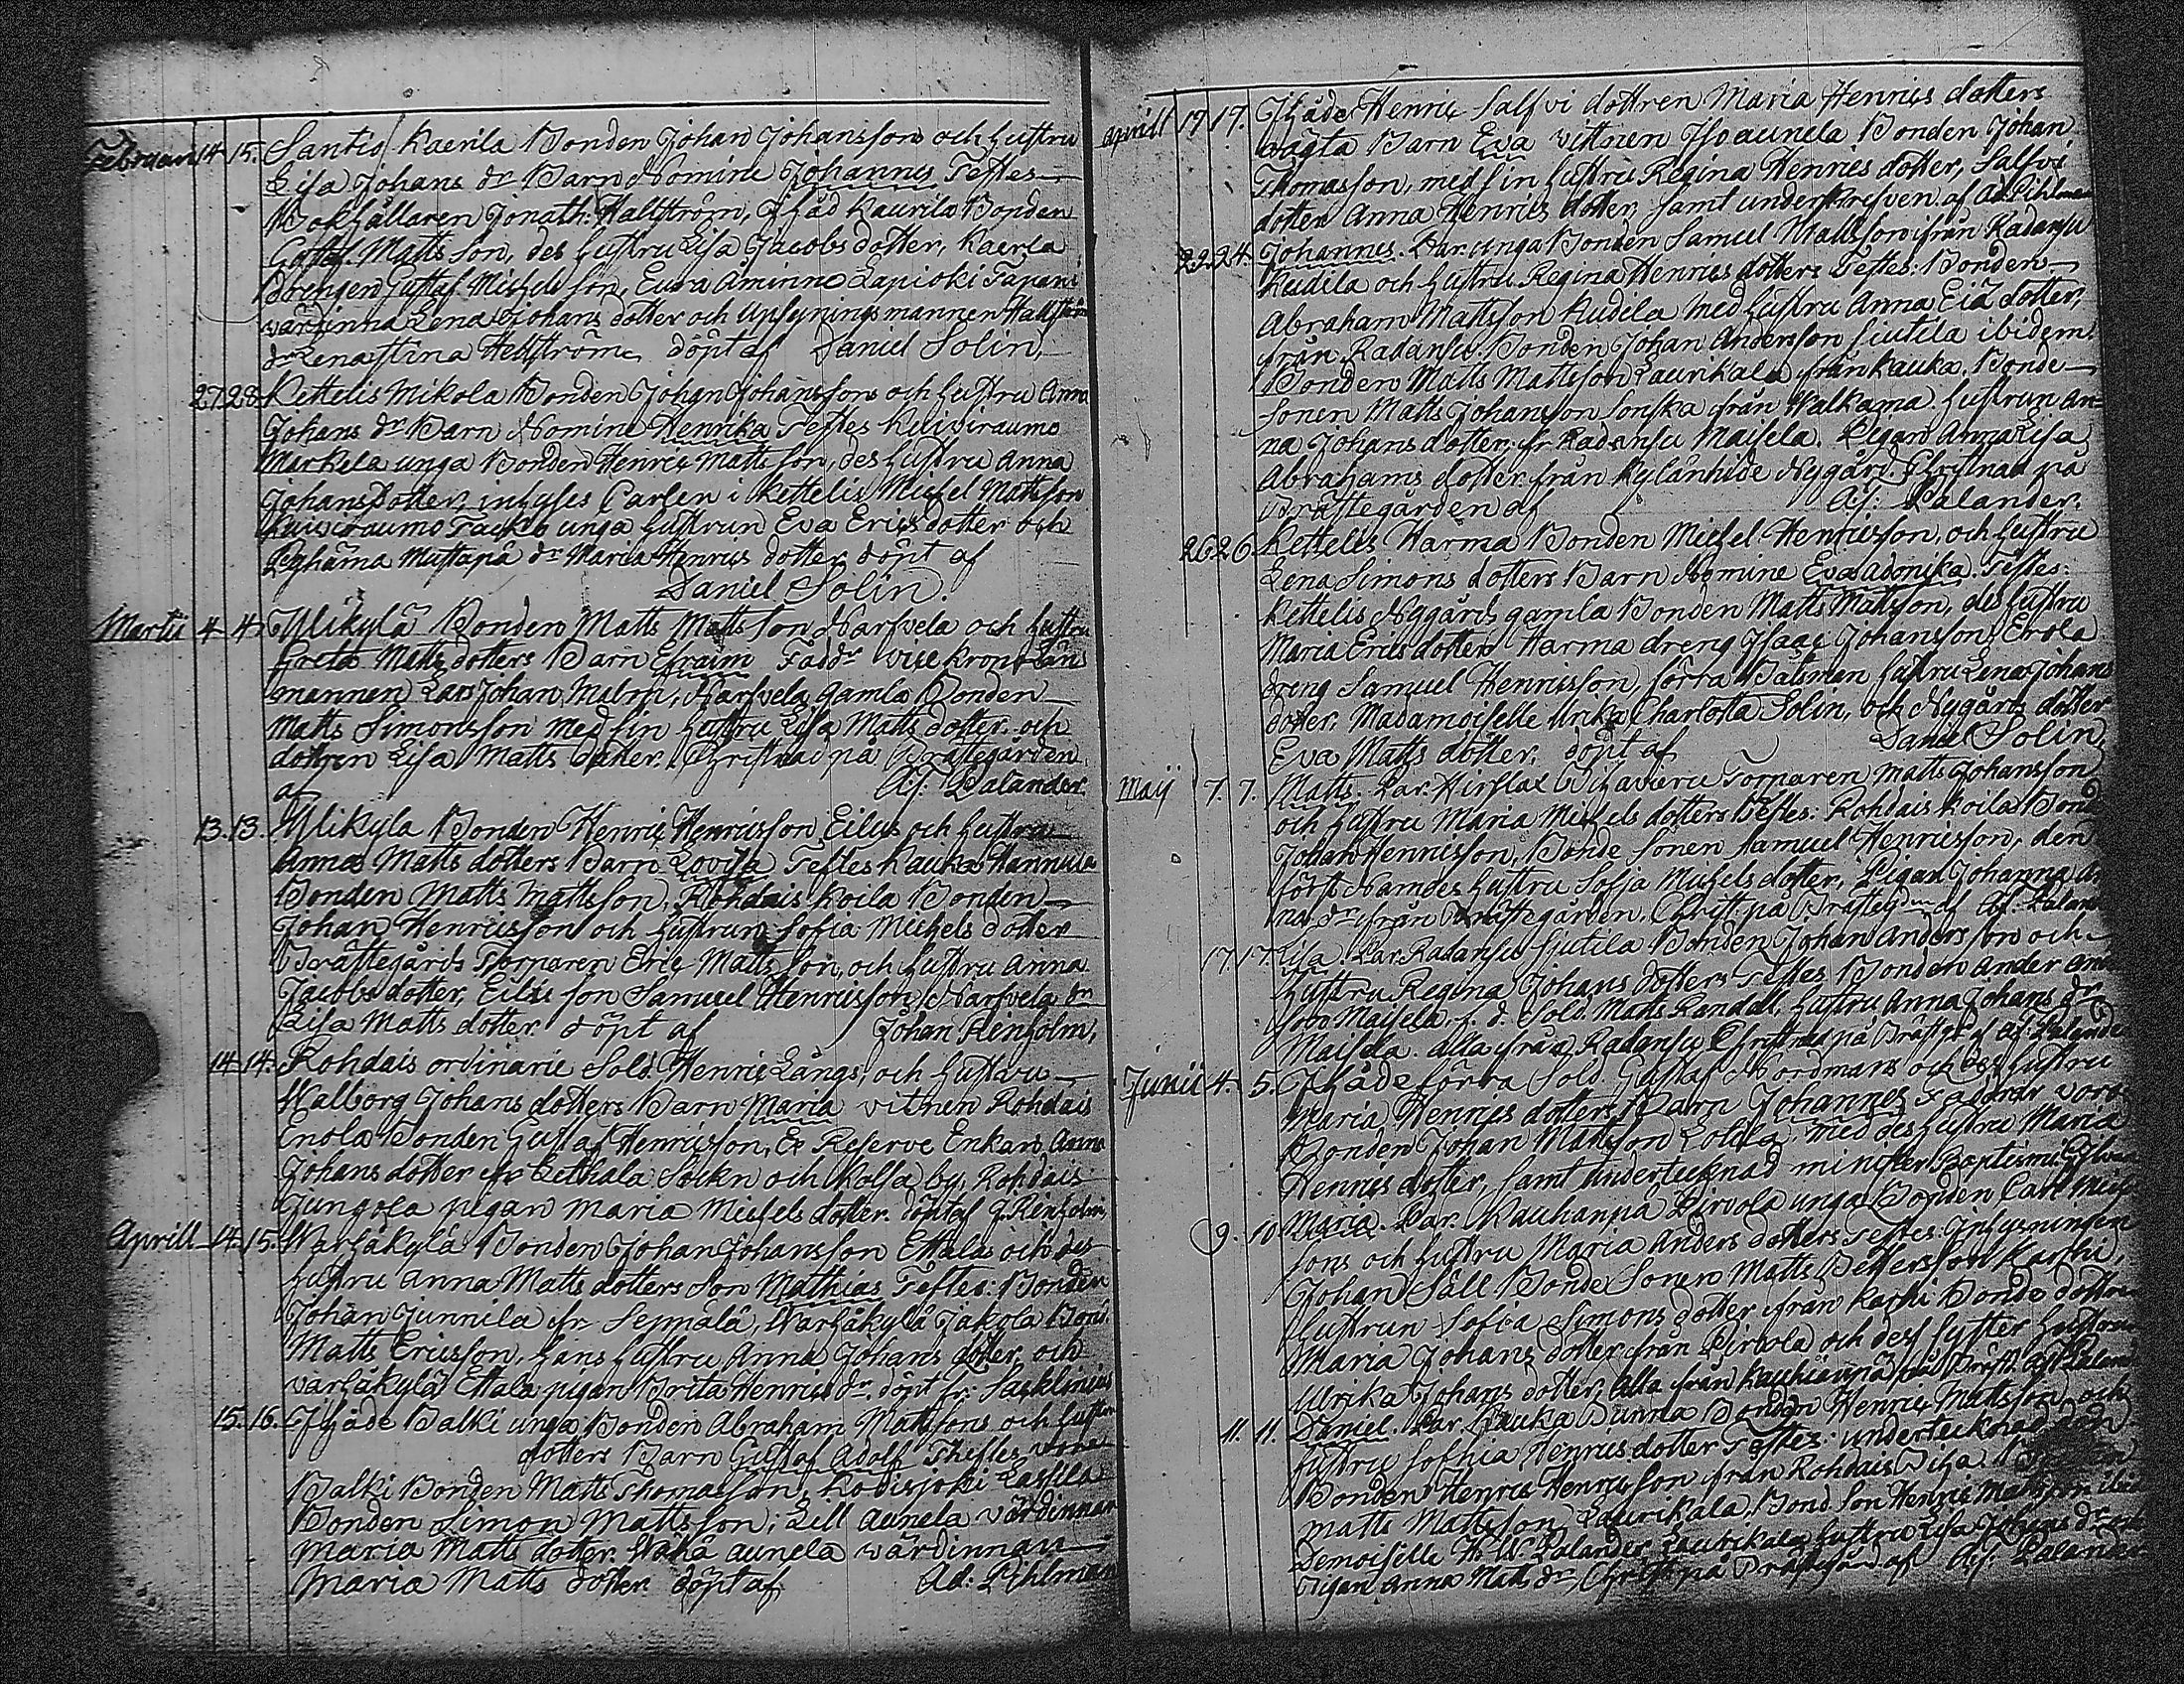 Februari 14 15. Santio Kaerila Bonden Johan Johansson och hustru
Lisa Johans dr Barn Nomine Johannes Testes
Bokhållaren Jonath. Hallström, Kaurila Bonden
Gustaf Matts Son, des hustru Lisa Jacobs dotter, Kaerla
Drengen Gustaf Michels son, Eura Aminno Lapioki Tapani
värdinna Lena Johans dotter och Upsyningsmannen Hallström
dr Lena Stina Hellström döpt af Daniel Solin.
27 28. Kettelis Mikola Bonden Johan Johansson och hustru Anna
Johans dr Barn Nomine Henrika Testes Kuiviraumo
Markela unga Bonden Henric Matts son, des hustru Anna
Johans Dotter, inhyses Carlen i Kettelis Michel Mattsson
Kuiviraumo unga hustrun Eva Erics dotter och
Mattapä dr Maria Henrics dotter döpt af
Daniel Solin.
Martii 4 4. Ylikylä Bonden Matts Matts Son Narfvela och hustru
Greta Matts dotters Barn Efraim Faddr vice kronolän
mannen Lars Johan Malm, Narfvela gamla Bonden
Matts Simonsson med sin hustru Lisa Matts dotter och
dottren Lisa Matts dotter. Christnad på Prästegården
af Aj: Palander.
13. 13. Ylikyla Bonden Henric Henricsson Eilus och hustru
Anna Matts dotters Barn Lovisa Testes Kauka Hannula
Bonden Matts Mattsson, Rohdais Koila Bonden
Johan Henricsson och hustrun Sofia Michels dotter
Prästegårds Torparen Eric Matts son, och hustru Anna
Jacobs dotter, Eilus son Samuel Henricsson Narfvela dr
Lisa Matts dotter döpt af Johan Renholm,
14 14. Rohdais ordinarie Sold. Henric Långs, och hustru
Walborg Johans dotters Barn Maria vitnen Rohdais
Enola Bonden Gustaf Henricsson, Ex Reserve Enkan Anna
Johans dotter fr Letthala Sockn och Kolsa by, Rohdais
Jungola pigan Maria Michels dotter. döpt af J. Renholm
Aprill 14 15. Warhåkylä Bonden Johan Johansson Ettala och des
hustru Anna Matts dotters Son Mathias Testes: Bonden
Johan Junnila fr Seppälä, Warhåkylä Jakola Bond.
Matts Ericsson, hans hustru Anna Johans dotter och
varhåkylä Ettala pigan Brita Henrics dr. döpt fr. Sacklinius
15. 16. Balki unga Bonden Abraham Mattsson och hustru
dotters Barn Gustaf Adolf Thestes voro
Balki Bonden Matts Thomasson, Kodisjoki Lassila
Bonden Simon Mattsson; Lill aunela värdinnan
Maria Matts dotter. aunela värdinnan
Maria Matts dotter döpt af Ad: Pihlman
Aprill 17 17. Henric Salfvi dottren Maria Henrics dotters
oägta Barn Eva vittnen Iso aunela Bonden Johan
Thomasson, med sin hustru Regina Henrics dotter, Salfvi
dotter Anna Henrics dotter, samt underskrefven af Ad Pihlman
23. 24. Johannes. Par. unga Bonden Samuel Mattsson ifrån Radansu
Kudila och hustru Regina Henrics dotter Testes: Bonden
Abraham Mattsson Kudila med hustru Anna dotter,
från Radansu. Bonden Johan Andersson Siutila ibidem.
Bonden Matts Mattsson Laurikala från Kauka. Bonde
sonen Matts Johansson Sonska från Walkama. hustrun An-
na Johans dotter, fr Radansu Maisela. Pigan Anna Lisa
Abrahams dotter från Nygård. Christnad på
Prästegården af Aj: Palander.
26 26 Kettelis Harma Bonden Michel Henricsson, och hustru
Lena Simons dotters Barn Nomine Eva Adonika. Testes:
Kettelis Nygårds gamla Bonden Matts Mattsson, des hustru
Maria Erics dotter Harma dreng Isaac Johansson, Erola
dreng Samuel Henricsson, förra Båtsman hustru Lena Johans
dotter. Madamoiselle Ulrika Charlotta Solin, och Nygårds dotter
Eva Matts dotter. döpt af Daniel Solin
Maij 7. 7. Matts. Par. Torparen Matts Johansson
och hustru Maria Michels dotters Testes: Rohdais Koila Bond
Johan Henricsson, Bonde Sonen Samuel Henricsson, den
först Namdes hustru Sofja Michels dotter, Pigan Johanna
dr ifrån Prästegården. Christ. på Prästeg. af Aj: Palan
17. 17. Lisa. Par. Radansu Siutila Bonden Johan Andersson och
hustru Regina Johans dotters Testes Bonden Ander
son Maisela, f. d. Sold. Matts Randell, hustru Anna Johans dr
Maisela. alla ifrån Radansu Christnad på af Aj. Palande
Junii 4. 5. förra Sold. Gustaf Nordmans och des hustru
Maria Henrics dotters Barn Johannes Faddrar voro
Bonden Johan Mattsson, med des hustru Maria
Henrics dotter, samt undertecknad minister Baptismi
9. 10 Maria. Par. Kauhanpä Pirvola unga Bonden Carl
sons och hustru Maria Anders dotters Testes: Inhysningen
Johan Säll Bonde Sonen Matts Pettersson Karhi,
hustrun Sofia Simons dotter ifrån Karhi Bonde dottren
Maria Johans dotter från Pirvola och dess syster hustrun
Ulrika Johans dotter, alla från Kauhianpä på Präst. af Aj Palan
11. 11. Daniel. Par. Kauka Bonden Henric Mattsson och
hustru Sofhia Henrics dotter Testes: undertecknad
Bonden Henric Henricsson ifrån Rohdais
Matts Mattsson Laurikala, Bond. son Henric Mattsson
Demoiselle H. W. Palander Laurikala hustru Lisa Johans dr
Pigan Anna Matts dr Christ på Prästegård af Aj: Palander